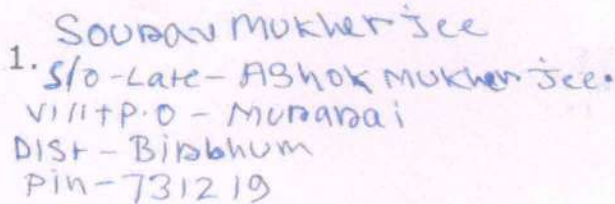 Sourav Mukherjee
1. S/o - Late - Ashok Mukherjee.
Vill+P.O - Murarai
Dist - Birbhum
Pin - 731219